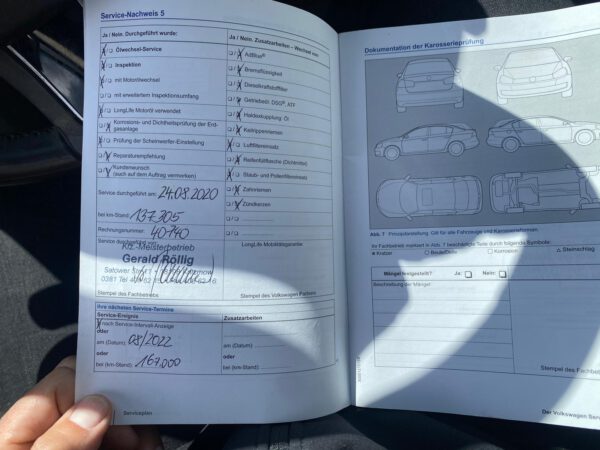 Service-Nachweis 5
Ja / Nein. Durchgeführt wurde:
Ölwechsel-Service
Inspektion
mit Motorölwechsel
mit erweitertem Inspektionsumfang
LongLife Motoröl verwendet
Korrosions- und Dichtheitsprüfung der Erdgasanlage
Prüfung der Scheinwerfer-Einstellung
Reparaturempfehlung
Kundenwunsch
(auch auf dem Auftrag vermerken)
Service durchgeführt am: 24.08.2020
bei km-Stand: 137.305
Rechnungsnummer: 40740
Service durchgeführt von:
Kfz-Meisterbetrieb
Gerald Röllig
Satower Str.
0381 Tel
Stempel des Fachbetriebs
Ja / Nein. Zusatzarbeiten – Wechsel von:
AdBlue®
Bremsflüssigkeit
Dieselkraftstofffilter
Getriebeöl: DSG®, ATF
Haldexkupplung: Öl
Keilrippenriemen
Luftfiltereinsatz
Reifenfüllflasche (Dichtmittel)
Staub- und Pollenfiltereinsatz
Zahnriemen
Zündkerzen
LongLife Mobilitätsgarantie.
Stempel des Volkswagen Partners
Ihre nächsten Service-Termine
Service-Ereignis
nach Service-Intervall-Anzeige
oder
am (Datum): 08/2022
oder
bei (km-Stand): 167.000
Zusatzarbeiten
am (Datum):
oder
bei (km-Stand):
Serviceplan
Dokumentation der Karosserieprüfung
Abb. 7 Prinzipdarstellung: Gilt für alle Fahrzeuge und Karosserieformen.
Ihr Fachbetrieb markiert in Abb. 7 beschädigte Teile durch folgende Symbole:
Kratzer
Beule/Delle
Korrosion
△ Steinschlag
Mängel festgestellt?
Ja:
Nein:
Beschreibung der Mängel:
Stempel des Fachbetriebs
Der Volkswagen Service